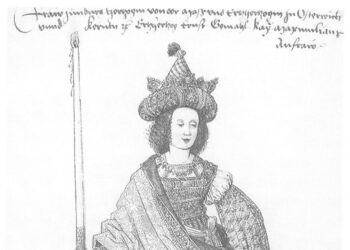 Fraw Zimburg Hertzogin von der Mass und Ertzhertzogin zu Osterreich
unnd Kernten Ertzhertzog Ernst Gemahl Kay Maximilians
Anfraw